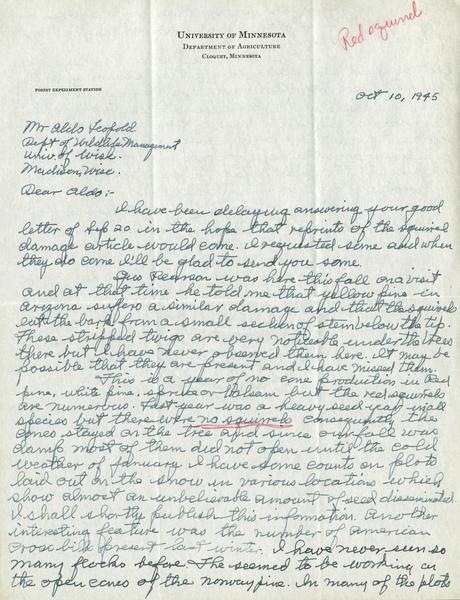 Red squirrel
University of Minnesota
Department of Agriculture
Cloquet, Minnesota
Forest Experiment Station
Oct 10, 1945
Mr Aldo Leopold
Dept of Wildlife Management
Univ. of Wisc.
Madison, Wisc.
Dear Aldo:-
I have been delaying answering your good
letter of Sep 20 in the hope that reprints of the squirrel
damage article would come. I requested some and when
they do come I'll be glad to send you some.
Gus Pearson was here this fall on a visit
and at that time he told me that yellow pine in
Arizona suffers a similar damage and that the squirrels
eats the bark from a small section of stem below the tip.
These stripped twigs are very noticeable under the trees
there but I have never observed them here. It may be
possible that they are present and I have missed them.
This is a year of no cone production in Red
pine, white pine, spruce or Balsam but the red squirrels
are numerous. Last year was a heavy seed year in all
species but there were no squirrels consequently the
cones stayed on the tree and since our fall was
damp most of them did not open until the cold
weather of January. I have some counts on plots
laid out on the snow in various locations which
show almost an unbelievable amount of seed disseminated.
I shall shortly publish this information. Another
interesting feature was the number of American
Cross bills present last winter. I have never seen so
many flocks before. The seemed to be working on
the open cones of the norway pine. In many of the plots